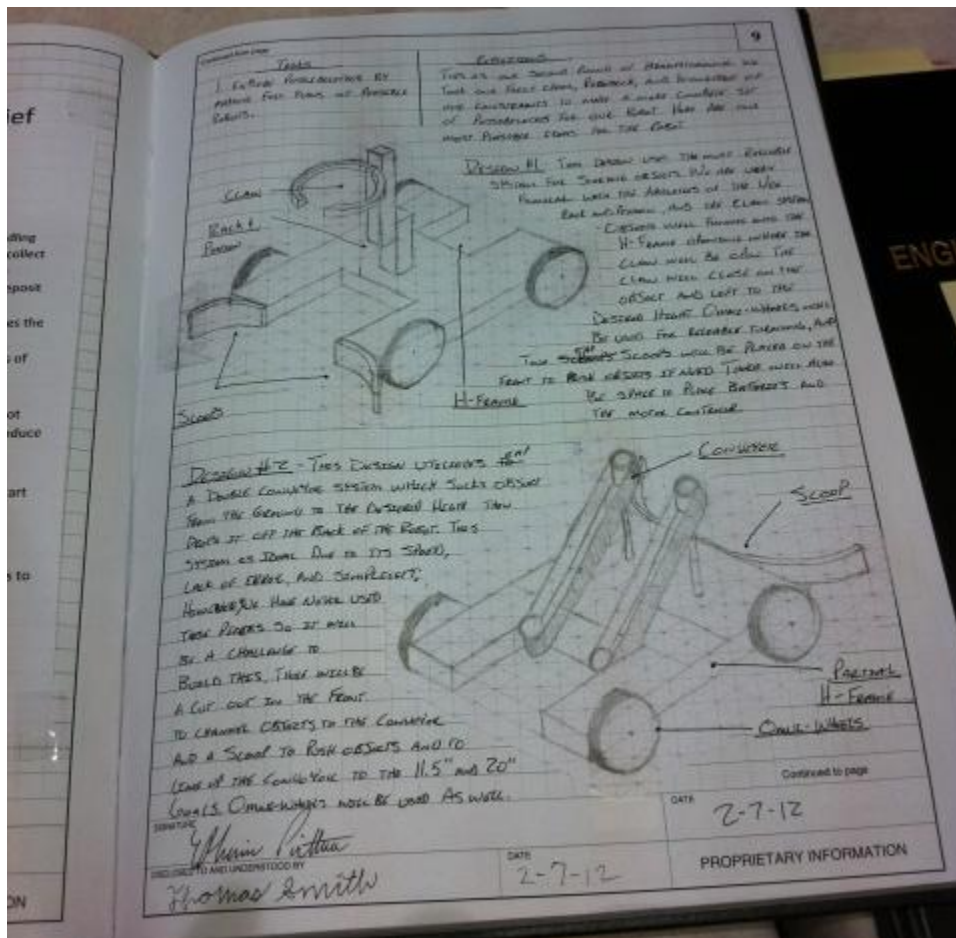 ief
nding
collect
spose
es the
s of
ot
oduce
art
s to
ON
Continued from page
9
Tasks
1. Further Possibilities by
making five plans of possible
robots.
Reflections
This is our second round of brainstorming. We
took our first ideas, research, and knowledge of
our constraints to make a more concise set
of possibilities for our robot. Here are our
most plausible ideas for the robot
Design #1 This design uses the most reliable
system for scoring objects. We are very
familiar with the abilities of the Vex
Rack and Pinion, and the claw system
- Objects will funnel into the
H-Frame opening where the
claw will be open. The
claw will close on the
object and lift to the
desired height. Omni-wheels will
be used for reliable turning, and
Two Scoops will be placed on the
front to push objects if need. There will also
be space to place batteries and
the motor controller.
Claw
Rack &
Pinion
Scoops
H-Frame
Design #2 - This design utilizes
a double conveyor system which sucks object
from the ground to the desired height then
drops it off the back of the robot. This
system is ideal due to its speed,
lack of error, and simplicity;
However, we have never used
these pieces so it will
be a challenge to
build this. There will be
a cut out in the front
to channel objects to the conveyor
and a scoop to push objects and to
line up the conveyor to the 11.5" and 20"
Goals. Omni-wheels will be used as well.
Conveyor
Scoop
Partial
H-Frame
Omni-Wheels
Continued to page
SIGNATURE
DATE
2-7-12
DISCLOSED TO AND UNDERSTOOD BY
Thomas Smith
DATE
2-7-12
PROPRIETARY INFORMATION
ENGI